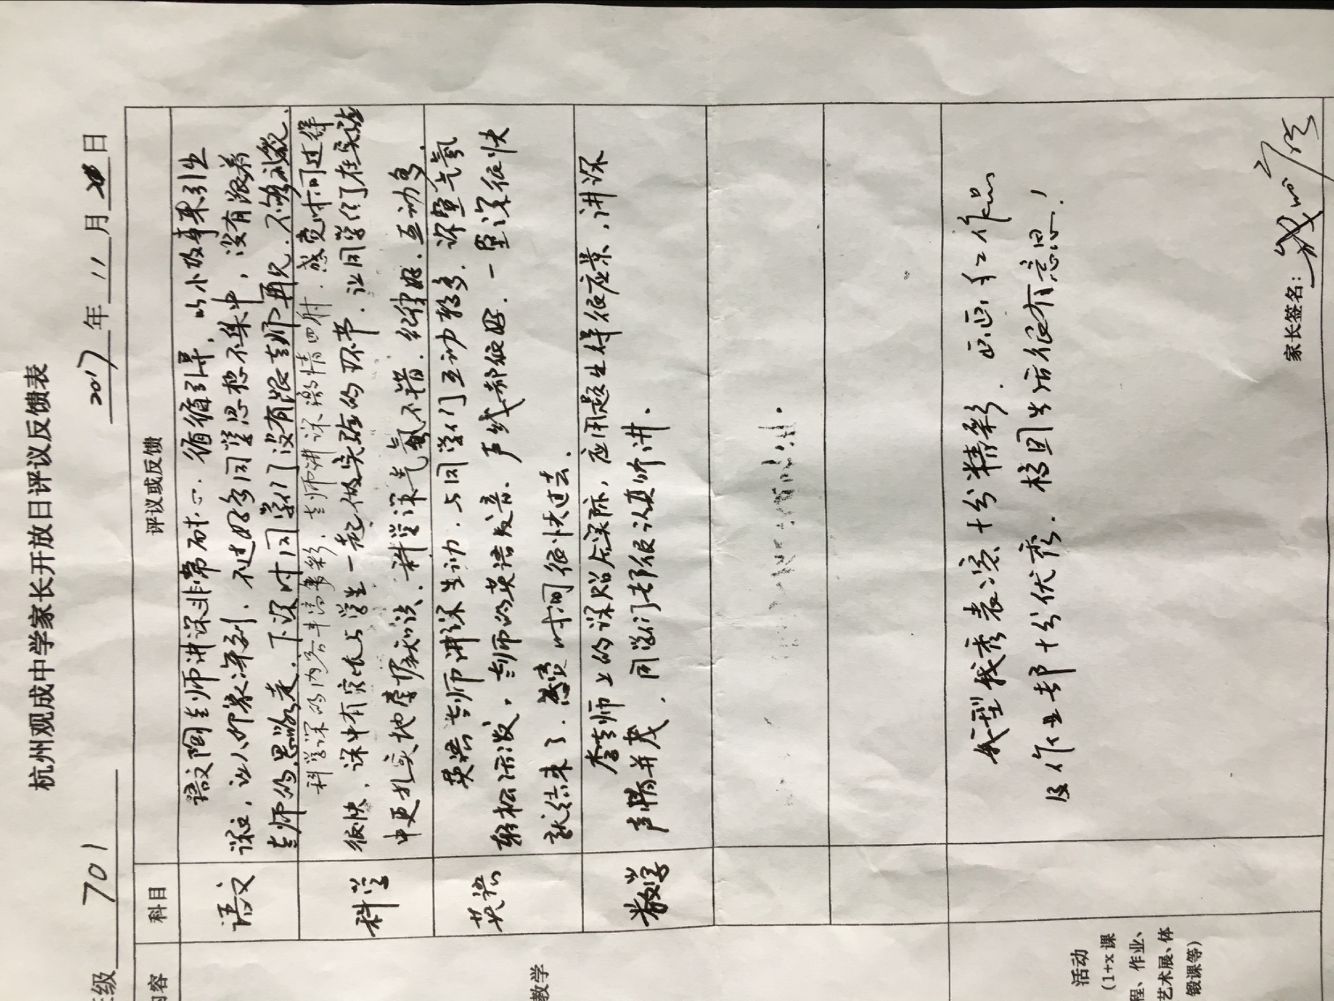 杭州观成中学家长开放日评议反馈表
级 701 2017年11月 日
内容 科目 评议或反馈
教学
语文
语文陶老师讲课非常耐心、循循引导,以小故事来引出
课文,让人印象深刻,不过好多同学思想不集中,没有跟着
老师的思路走,下课时同学们没有跟老师再见,不够礼貌.
科学
科学课的内容丰富多彩,老师讲课激情四射,感觉时间过得
很快,课中有家长与学生一起做实验的环节,让同学们在实验
中更扎实地掌握知识,科学课气氛不错,纪律好,互动多.
英语
英语老师讲课生动,与同学们互动较多,课堂气氛
轻松活泼,老师的英语发音、声线都很好,一堂课很快
就结束了,感觉时间很快过去.
数学
李老师上的课贴近实际,应用题出得很应景,讲课
声情并茂,同学们都很认真听讲.
活动
(1+x课
程、作业、
艺术展、体
锻课等)
我型我秀表演十分精彩,画画手工作品
及作业都十分优秀,校园生活很有意思!
家长签名: